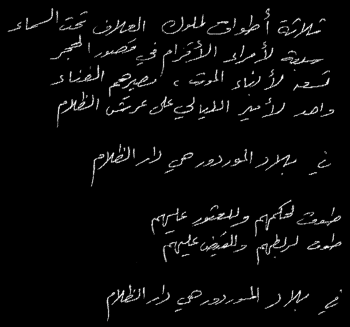 ثلاثة أطواق لملوك العلاف تحت السماء
سبعة لأمراء الأقزام في قصور الحجر
تسعة لأبناء الموت، مصيرهم الفناء
واحد لأمير الليالي على عرش الظلام
في بلاد الموردور هي دار الظلام
طوق لحكمهم وللعثور عليهم
طوق لربطهم وللقبض عليهم
في بلاد الموردور هي دار الظلام